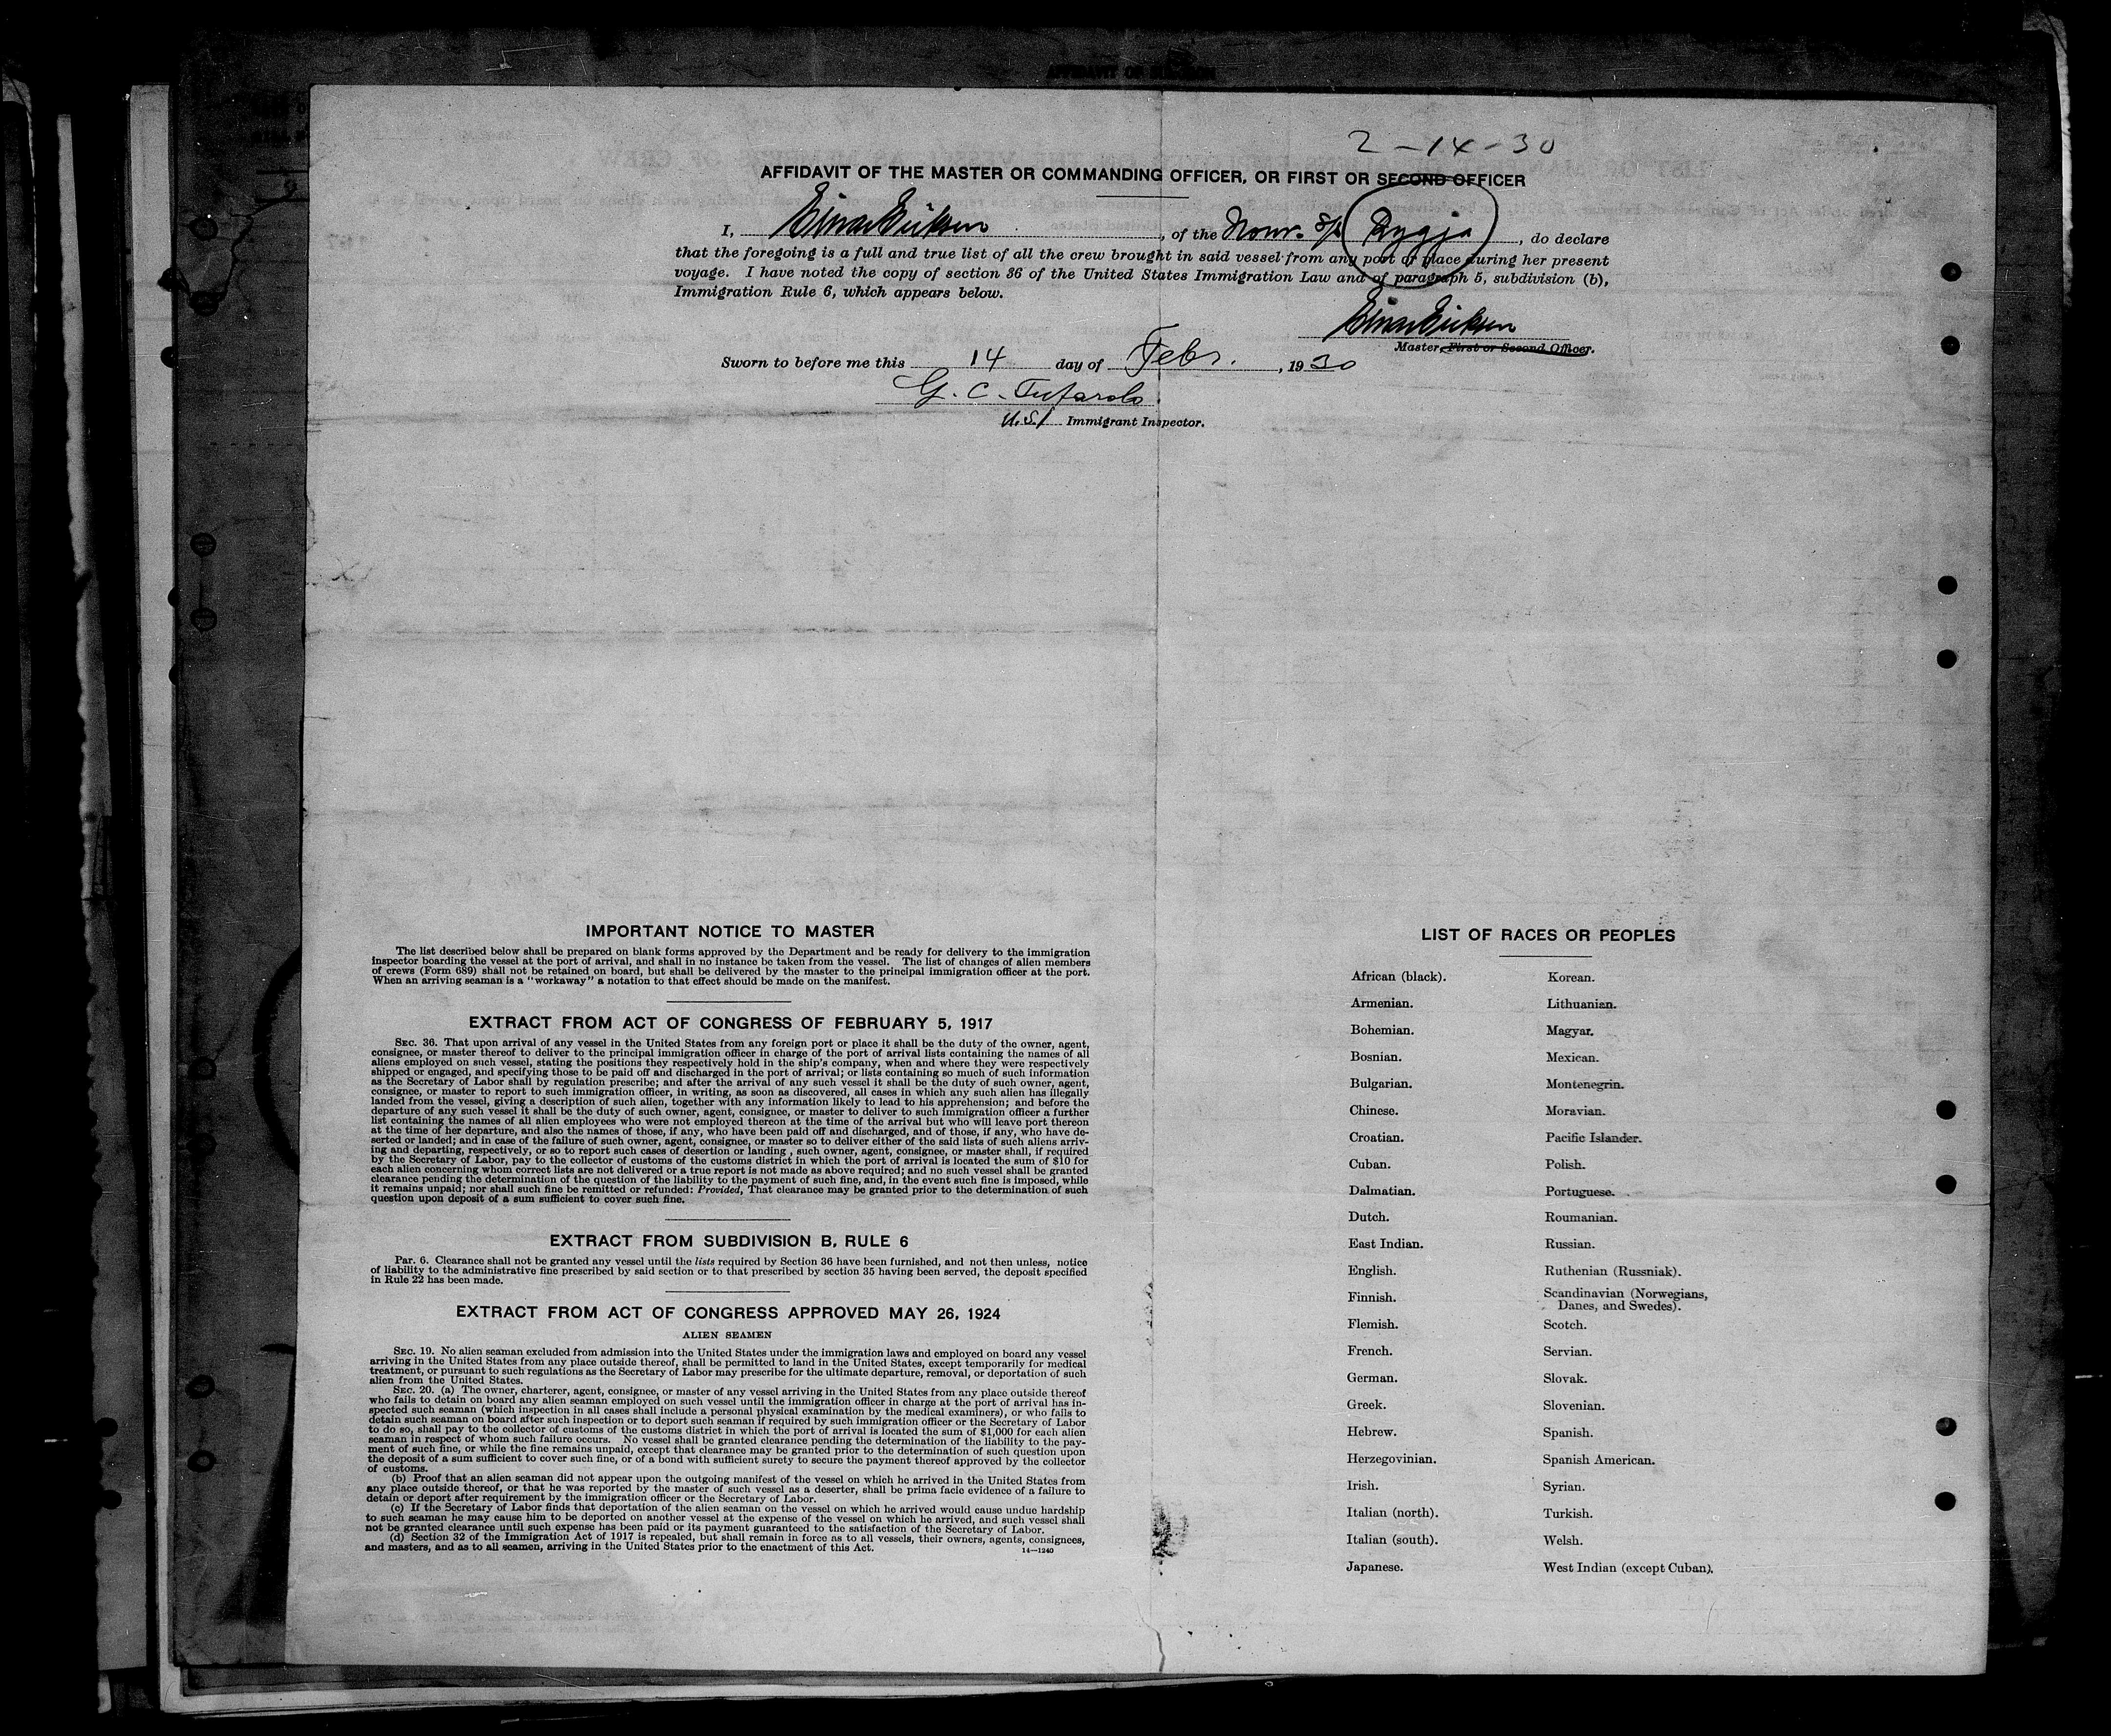 2-14-30
AFFIDAVIT OF THE MASTER OR COMMANDING OFFICER, OR FIRST OR SECOND OFFICER
I, Einar Eriksen, of the Norw. S/S Rygja, do declare
that the foregoing is a full and true list of all the crew brought in said vessel from any port or place during her present
voyage. I have noted the copy of section 36 of the United States Immigration Law and of paragraph 5, subdivision (b),
Immigration Rule 6, which appears below.
Einar Eriksen
Master, First or Second Officer.
Sworn to before me this 14 day of Febr., 1930
G. C. Tufarolo
U.S. Immigrant Inspector.
IMPORTANT NOTICE TO MASTER
The list described below shall be prepared on blank forms approved by the Department and be ready for delivery to the immigration
inspector boarding the vessel at the port of arrival, and shall in no instance be taken from the vessel. The list of changes of alien members
of crews (Form 689) shall not be retained on board, but shall be delivered by the master to the principal immigration officer at the port.
When an arriving seaman is a "workaway" a notation to that effect should be made on the manifest.
EXTRACT FROM ACT OF CONGRESS OF FEBRUARY 5, 1917
SEC. 36. That upon arrival of any vessel in the United States from any foreign port or place it shall be the duty of the owner, agent,
consignee, or master thereof to deliver to the principal immigration officer in charge of the port of arrival lists containing the names of all
aliens employed on such vessel, stating the positions they respectively hold in the ship's company, when and where they were respectively
shipped or engaged, and specifying those to be paid off and discharged in the port of arrival; or lists containing so much of such information
as the Secretary of Labor shall by regulation prescribe; and after the arrival of any such vessel it shall be the duty of such owner, agent,
consignee, or master to report to such immigration officer, in writing, as soon as discovered, all cases in which any such alien has illegally
landed from the vessel, giving a description of such alien, together with any information likely to lead to his apprehension; and before the
departure of any such vessel it shall be the duty of such owner, agent, consignee, or master to deliver to such immigration officer a further
list containing the names of all alien employees who were not employed thereon at the time of the arrival but who will leave port thereon
at the time of her departure, and also the names of those, if any, who have been paid off and discharged, and of those, if any, who have de-
serted or landed; and in case of the failure of such owner, agent, consignee, or master so to deliver either of the said lists of such aliens arriv-
ing and departing, respectively, or so to report such cases of desertion or landing , such owner, agent, consignee, or master shall, if required
by the Secretary of Labor, pay to the collector of customs of the customs district in which the port of arrival is located the sum of $10 for
each alien concerning whom correct lists are not delivered or a true report is not made as above required; and no such vessel shall be granted
clearance pending the determination of the question of the liability to the payment of such fine, and, in the event such fine is imposed, while
it remains unpaid; nor shall such fine be remitted or refunded: Provided, That clearance may be granted prior to the determination of such
question upon deposit of a sum sufficient to cover such fine.
EXTRACT FROM SUBDIVISION B, RULE 6
Par. 6. Clearance shall not be granted any vessel until the lists required by Section 36 have been furnished, and not then unless, notice
of liability to the administrative fine prescribed by said section or to that prescribed by section 35 having been served, the deposit specified
in Rule 22 has been made.
EXTRACT FROM ACT OF CONGRESS APPROVED MAY 26, 1924
ALIEN SEAMEN
SEC. 19. No alien seaman excluded from admission into the United States under the immigration laws and employed on board any vessel
arriving in the United States from any place outside thereof, shall be permitted to land in the United States, except temporarily for medical
treatment, or pursuant to such regulations as the Secretary of Labor may prescribe for the ultimate departure, removal, or deportation of such
alien from the United States.
SEC. 20. (a) The owner, charterer, agent, consignee, or master of any vessel arriving in the United States from any place outside thereof
who fails to detain on board any alien seaman employed on such vessel until the immigration officer in charge at the port of arrival has in-
spected such seaman (which inspection in all cases shall include a personal physical examination by the medical examiners), or who fails to
detain such seaman on board after such inspection or to deport such seaman if required by such immigration officer or the Secretary of Labor
to do so, shall pay to the collector of customs of the customs district in which the port of arrival is located the sum of $1,000 for each alien
seaman in respect of whom such failure occurs. No vessel shall be granted clearance pending the determination of the liability to the pay-
ment of such fine, or while the fine remains unpaid, except that clearance may be granted prior to the determination of such question upon
the deposit of a sum sufficient to cover such fine, or of a bond with sufficient surety to secure the payment thereof approved by the collector
of customs.
(b) Proof that an alien seaman did not appear upon the outgoing manifest of the vessel on which he arrived in the United States from
any place outside thereof, or that he was reported by the master of such vessel as a deserter, shall be prima facie evidence of a failure to
detain or deport after requirement by the immigration officer or the Secretary of Labor.
(c) If the Secretary of Labor finds that deportation of the alien seaman on the vessel on which he arrived would cause undue hardship
to such seaman he may cause him to be deported on another vessel at the expense of the vessel on which he arrived, and such vessel shall
not be granted clearance until such expense has been paid or its payment guaranteed to the satisfaction of the Secretary of Labor.
(d) Section 32 of the Immigration Act of 1917 is repealed, but shall remain in force as to all vessels, their owners, agents, consignees,
and masters, and as to all seamen, arriving in the United States prior to the enactment of this Act.
14—1240
LIST OF RACES OR PEOPLES
African (black). Korean.
Armenian. Lithuanian.
Bohemian. Magyar.
Bosnian. Mexican.
Bulgarian. Montenegrin.
Chinese. Moravian.
Croatian. Pacific Islander.
Cuban. Polish.
Dalmatian. Portuguese.
Dutch. Roumanian.
East Indian. Russian.
English. Ruthenian (Russniak).
Finnish. Scandinavian (Norwegians,
Danes, and Swedes).
Flemish. Scotch.
French. Servian.
German. Slovak.
Greek. Slovenian.
Hebrew. Spanish.
Herzegovinian. Spanish American.
Irish. Syrian.
Italian (north). Turkish.
Italian (south). Welsh.
Japanese. West Indian (except Cuban).